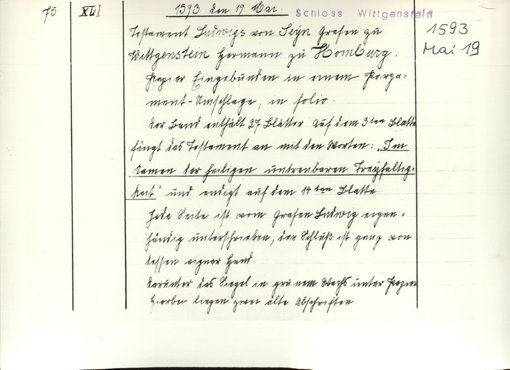 75 XLI 1593 den 19 Mai. Schloss Wittgenstein
1593
Mai 19
Testament Ludwigs von Seyn Grafen zu
Wittgenstein Hermann zu Homburg.
Papier Eingebunden in einem Perga-
ment-Umschlage, in folio.
Der Band enthält 27 Blätter auf dem 3ten Blatte
fängt das Testament an mit den Worten: „Im
Namen der heiligen untrenbaren Dreyfaltig-
keit" und endigt auf dem 14ten Blatte.
Jede Seite ist vom Grafen Ludwig eigen-
händig unterschrieben, der Schluß ist ganz von
dessen eigner Hand.
Darunter das Siegel in grünem Wachs unter Papier
Hierbei liegen zwei alte Abschriften